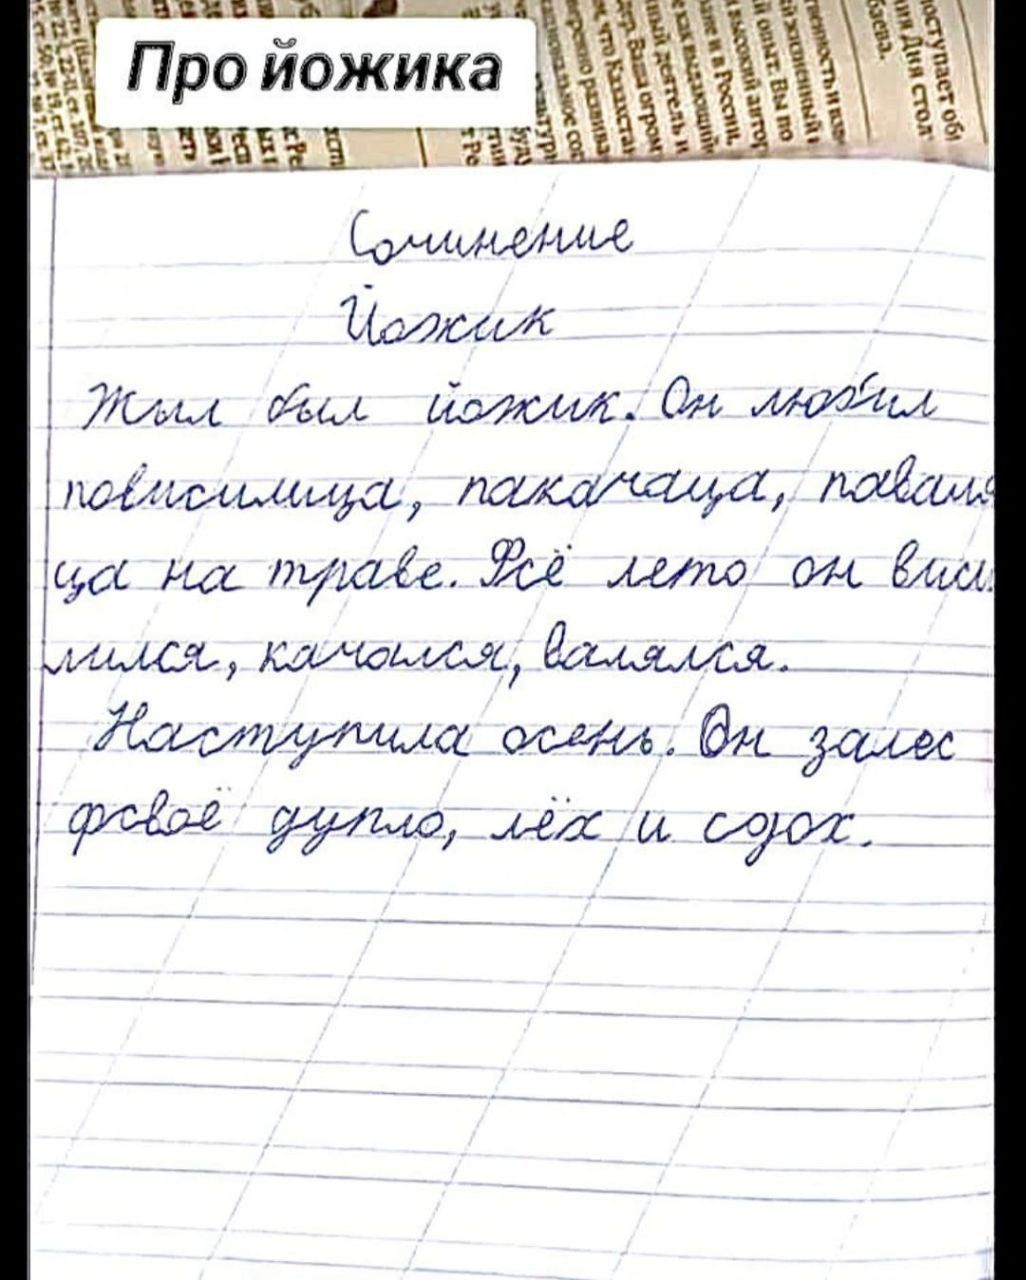 Про йожика
Сочинение
Йожик
Жыл был йожик. Он любил
повисилица, пакачаца, паваля
ца на траве. Фсё лето он виси
лился, качался, валялся.
Наступила осень. Он залес
фсваё дупло, лёх и сдох.